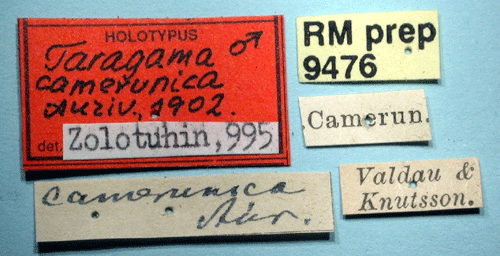 HOLOTYPUS
Taragama ♂
camerunica
Auriv., 1902.
det. Zolotuhin, 995
RM prep
9476
Camerun.
camerunica
Aur.
Valdau &
Knutsson.